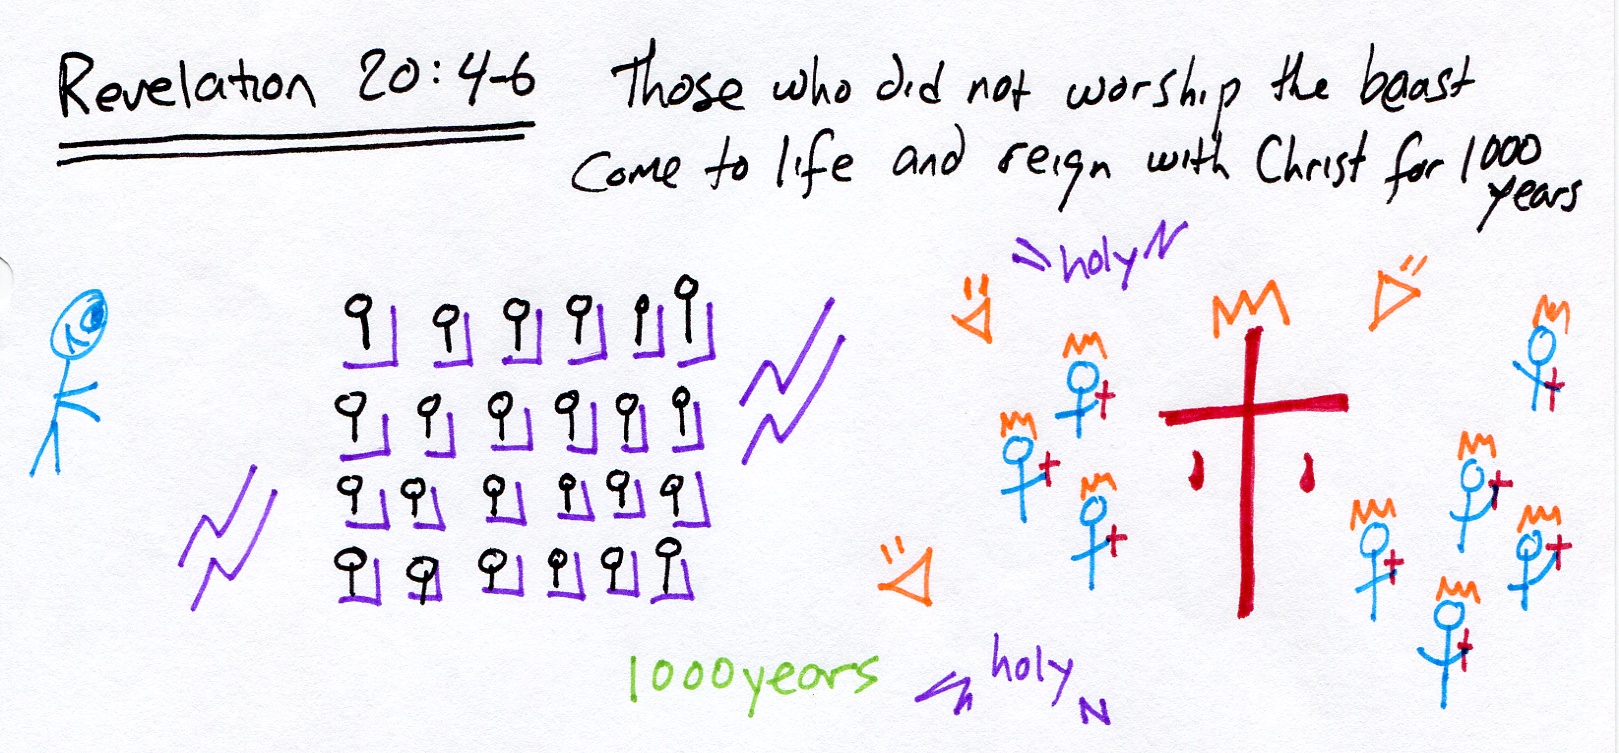 Revelation 20:4-6
Those who did not worship the beast
come to life and reign with Christ for 1000
years
holy
1000years
holy